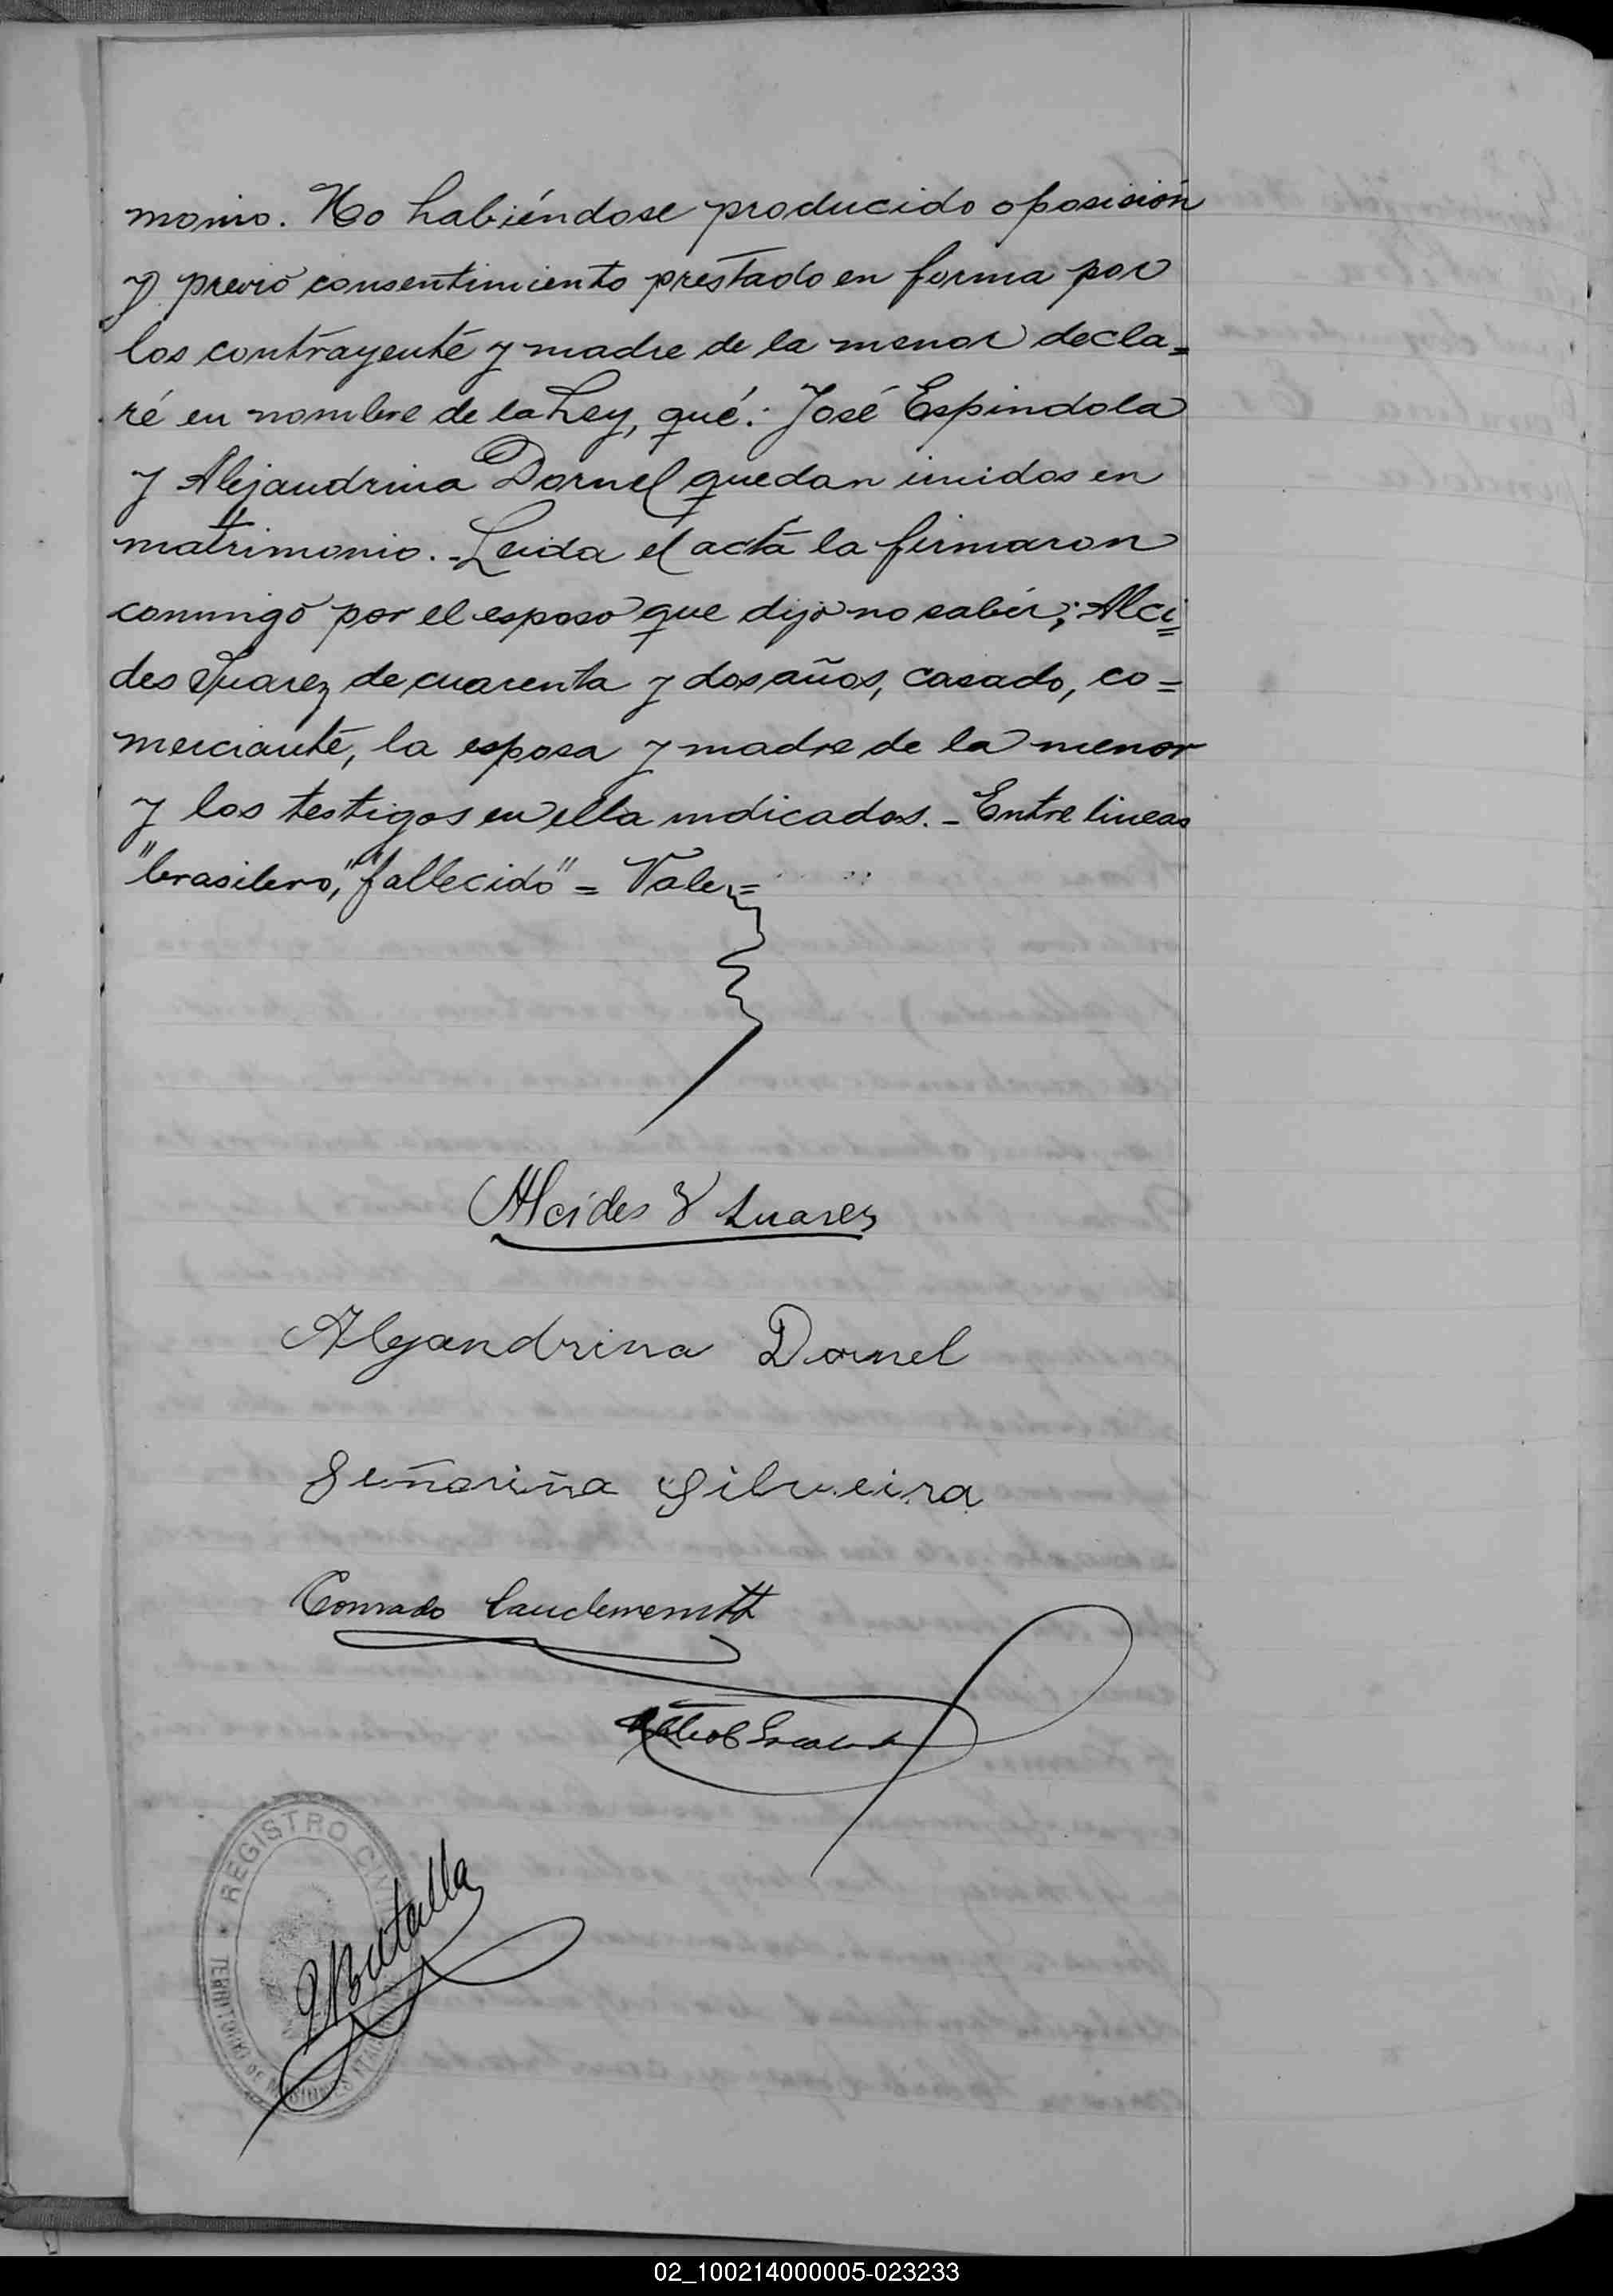 monio. No habiéndose producido oposisión
y previo consentimiento prestado en forma por
los contrayente y madre de la menor decla=
ré en nombre de la Ley, qué: José Espindola
y Alejandrina Dornel quedan unidos en
matrimonio. - Leida el acta la firmaron
conmigo por el esposo que dijo no saber; Alci=
des Suarez de cuarenta y dos años, casado, co=
merciante, la esposa y madre de la menor
y los testigos en ella indicados. - Entre lineas
"brasilero," "fallecido" = Vale. =
Alcides Y Suarez
Alejandrina Dornel
Señoriña Silveira
Conrado
REGISTRO CIVIL
Batalla
TERRITORIO DE MISIONES
02_100214000005-023233